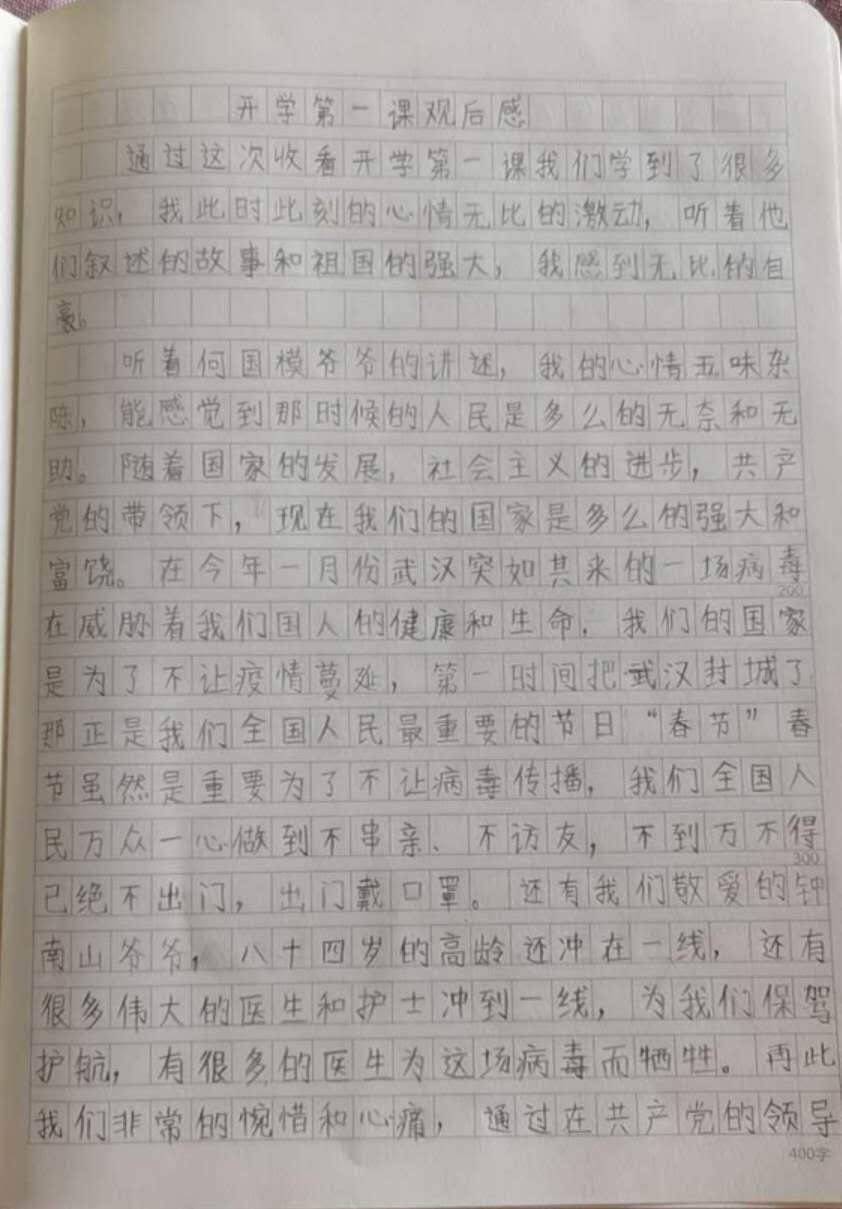 开学第一课观后感
通过这次收看开学第一课我们学到了很多
知识，我此时此刻的心情无比的激动，听着他
们叙述的故事和祖国的强大，我感到无比的自
豪。
听着何国模爷爷的讲述，我的心情五味杂
陈，能感觉到那时候的人民是多么的无奈和无
助。随着国家的发展，社会主义的进步，共产
党的带领下，现在我们的国家是多么的强大和
富饶。在今年一月份武汉突如其来的一场病毒
200
在威胁着我们国人的健康和生命．我们的国家
是为了不让疫情蔓延，第一时间把武汉封城了
那正是我们全国人民最重要的节日“春节”春
节虽然是重要为了不让病毒传播，我们全国人
民万众一心做到不串亲、不访友，不到万不得
300
已绝不出门，出门戴口罩。还有我们敬爱的钟
南山爷爷，八十四岁的高龄还冲在一线，还有
很多伟大的医生和护士冲到一线，为我们保驾
护航，有很多的医生为这场病毒而牺牲。再此
我们非常的惋惜和心痛，通过在共产党的领导
400字